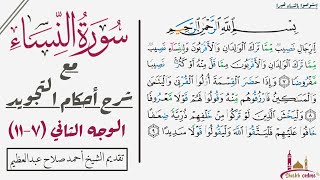 بِسْمِ اللَّهِ الرَّحْمَٰنِ الرَّحِيمِ
لِّلرِّجَالِ نَصِيبٌ مِّمَّا تَرَكَ الْوَالِدَانِ وَالْأَقْرَبُونَ وَلِلنِّسَاءِ نَصِيبٌ
مِّمَّا تَرَكَ الْوَالِدَانِ وَالْأَقْرَبُونَ مِمَّا قَلَّ مِنْهُ أَوْ كَثُرَ نَصِيبًا
مَّفْرُوضًا ٧ وَإِذَا حَضَرَ الْقِسْمَةَ أُولُو الْقُرْبَىٰ وَالْيَتَامَىٰ
وَالْمَسَاكِينُ فَارْزُقُوهُم مِّنْهُ وَقُولُوا لَهُمْ قَوْلًا مَّعْرُوفًا
٨ وَلْيَخْشَ الَّذِينَ لَوْ تَرَكُوا مِنْ خَلْفِهِمْ ذُرِّيَّةً ضِعَافًا
خَافُوا عَلَيْهِمْ فَلْيَتَّقُوا اللَّهَ وَلْيَقُولُوا قَوْلًا سَدِيدًا ٩
سُورَةُ النِّسَاءِ
مع
شرح أحكام التجويد
الوجه الثاني (٧-١١)
تقديم الشيخ أحمد صلاح عبدالعظيم
Sheikh online